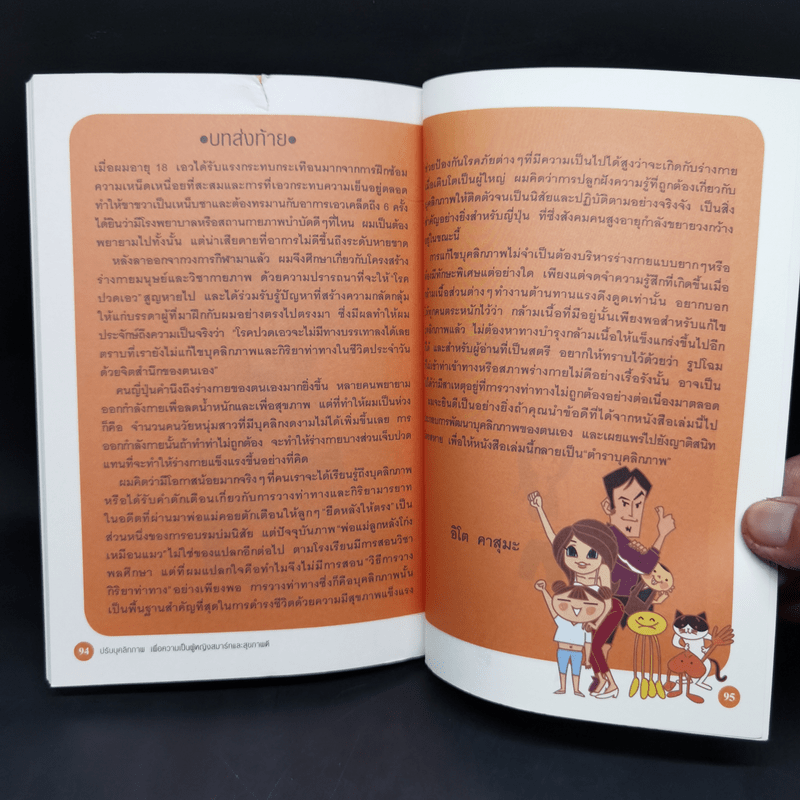 •บทส่งท้าย•
เมื่อผมอายุ 18 เอวได้รับแรงกระทบกระเทือนมากจากการฝึกซ้อม
ความเหน็ดเหนื่อยที่สะสมและการที่เอวกระทบความเย็นอยู่ตลอด
ทำให้ขาขวาเป็นเหน็บชาและต้องทรมานกับอาการเอวเคล็ดถึง 6 ครั้ง
ได้ยินว่ามีโรงพยาบาลหรือสถานกายภาพบำบัดดีๆที่ไหน ผมเป็นต้อง
พยายามไปทั้งนั้น แต่น่าเสียดายที่อาการไม่ดีขึ้นถึงระดับหายขาด
หลังลาออกจากวงการกีฬามาแล้ว ผมจึงศึกษาเกี่ยวกับโครงสร้าง
ร่างกายมนุษย์และวิชากายภาพ ด้วยความปรารถนาที่จะให้ "โรค
ปวดเอว" สูญหายไป และได้ร่วมรับรู้ปัญหาที่สร้างความกลัดกลุ้ม
ให้แก่บรรดาผู้ที่มาฝึกกับผมอย่างตรงไปตรงมา ซึ่งมีผลทำให้ผม
ประจักษ์ถึงความเป็นจริงว่า "โรคปวดเอวจะไม่มีทางบรรเทาลงได้เลย
ตราบที่เรายังไม่แก้ไขบุคลิกภาพและกิริยาท่าทางในชีวิตประจำวัน
ด้วยจิตสำนึกของตนเอง"
คนญี่ปุ่นคำนึงถึงร่างกายของตนเองมากยิ่งขึ้น หลายคนพยายาม
ออกกำลังกายเพื่อลดน้ำหนักและเพื่อสุขภาพ แต่ที่ทำให้ผมเป็นห่วง
ก็คือ จำนวนคนวัยหนุ่มสาวที่มีบุคลิกงดงามไม่ได้เพิ่มขึ้นเลย การ
ออกกำลังกายนั้นถ้าทำท่าไม่ถูกต้อง จะทำให้ร่างกายบางส่วนเจ็บปวด
แทนที่จะทำให้ร่างกายแข็งแรงขึ้นอย่างที่คิด
ผมคิดว่ามีโอกาสน้อยมากจริงๆที่คนเราจะได้เรียนรู้ถึงบุคลิกภาพ
หรือได้รับคำตักเตือนเกี่ยวกับการวางท่าทางและกิริยามารยาท
ในอดีตที่ผ่านมาพ่อแม่คอยตักเตือนให้ลูกๆ "ยืดหลังให้ตรง" เป็น
ส่วนหนึ่งของการอบรมบ่มนิสัย แต่ปัจจุบันภาพ "พ่อแม่ลูกหลังโก่ง
เหมือนแมว" ไม่ใช่ของแปลกอีกต่อไป ตามโรงเรียนมีการสอนวิชา
พลศึกษา แต่ที่ผมแปลกใจคือทำไมจึงไม่มีการสอน "วิธีการวาง
กิริยาท่าทาง" อย่างเพียงพอ การวางท่าทางซึ่งก็คือบุคลิกภาพนั้น
เป็นพื้นฐานสำคัญที่สุดในการดำรงชีวิตด้วยความมีสุขภาพแข็งแรง
94 ปรับบุคลิกภาพ เพื่อความเป็นผู้หญิงสมาร์ทและสุขภาพดี
ช่วยป้องกันโรคภัยต่างๆที่มีความเป็นไปได้สูงว่าจะเกิดกับร่างกาย
เมื่อเติบโตเป็นผู้ใหญ่ ผมคิดว่าการปลูกฝังความรู้ที่ถูกต้องเกี่ยวกับ
บุคลิกภาพให้ติดตัวจนเป็นนิสัยและปฏิบัติตามอย่างจริงจัง เป็นสิ่ง
สำคัญอย่างยิ่งสำหรับญี่ปุ่น ที่ซึ่งสังคมคนสูงอายุกำลังขยายวงกว้าง
อยู่ในขณะนี้
การแก้ไขบุคลิกภาพไม่จำเป็นต้องบริหารร่างกายแบบยากๆหรือ
ต้องมีทักษะพิเศษแต่อย่างใด เพียงแต่จดจำความรู้สึกที่เกิดขึ้นเมื่อ
กล้ามเนื้อส่วนต่างๆทำงานต้านทานแรงดึงดูดเท่านั้น อยากบอก
ให้ทุกคนตระหนักไว้ว่า กล้ามเนื้อที่มีอยู่นั้นเพียงพอสำหรับแก้ไข
บุคลิกภาพแล้ว ไม่ต้องหาทางบำรุงกล้ามเนื้อให้แข็งแกร่งขึ้นไปอีก
ก็ได้ และสำหรับผู้อ่านที่เป็นสตรี อยากให้ทราบไว้ด้วยว่า รูปโฉม
ไม่เข้าท่าเข้าทางหรือสภาพร่างกายไม่ดีอย่างเรื้อรังนั้น อาจเป็น
ได้ว่ามีสาเหตุอยู่ที่การวางท่าทางไม่ถูกต้องอย่างต่อเนื่องมาตลอด
ผมจะยินดีเป็นอย่างยิ่งถ้าคุณนำข้อดีที่ได้จากหนังสือเล่มนี้ไป
การพัฒนาบุคลิกภาพของตนเอง และเผยแพร่ไปยังญาติสนิท
เพื่อให้หนังสือเล่มนี้กลายเป็น "ตำราบุคลิกภาพ"
อิโต คาสุมะ
95